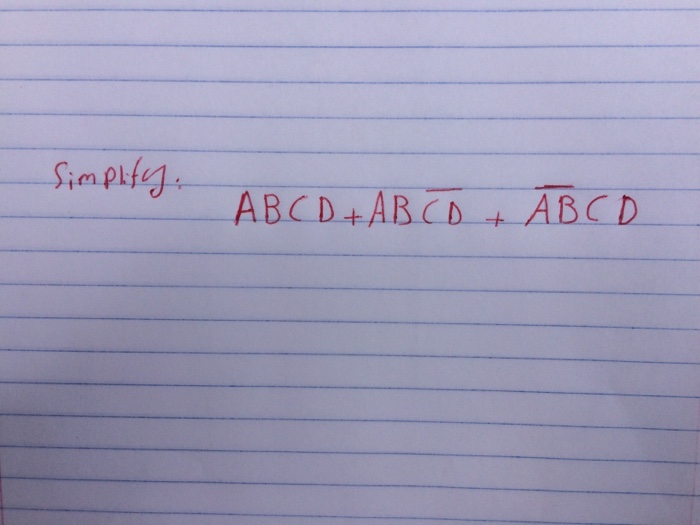 Simplify:
ABCD + AB\overline{CD} + \overline{AB}CD